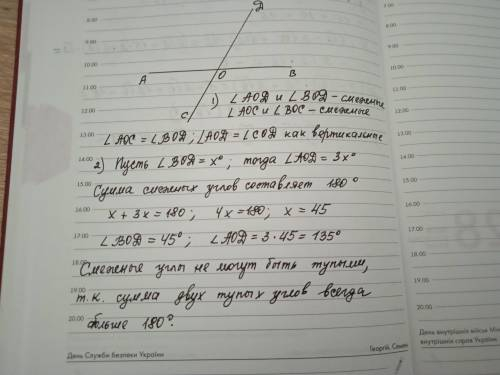 8.00
9.00
10.00
11.00
12.00
13.00
14.00
15.00
16.00
17.00
18.00
19.00
20.00
Д
A O B
C
1) ∠AOД и ∠BOД - смежные
∠AOC и ∠BOC - смежные
∠AOC = ∠BOД; ∠AOД = ∠COД как вертикальные
2) Пусть ∠BOД = x°; тогда ∠AOД = 3x°
Сумма смежных углов составляет 180°
x + 3x = 180; 4x = 180; x = 45
∠BOД = 45°; ∠AOД = 3·45 = 135°
Смежные углы не могут быть тупыми,
т.к. сумма двух тупых углов всегда
больше 180°.
День Служби безпеки України
Георгій, Семен
8.00
9.00
10.00
11.00
12.00
13.00
14.00
15.00
16.00
17.00
18.00
19.00
20.00
День внутрішніх військ
внутрішніх справ України